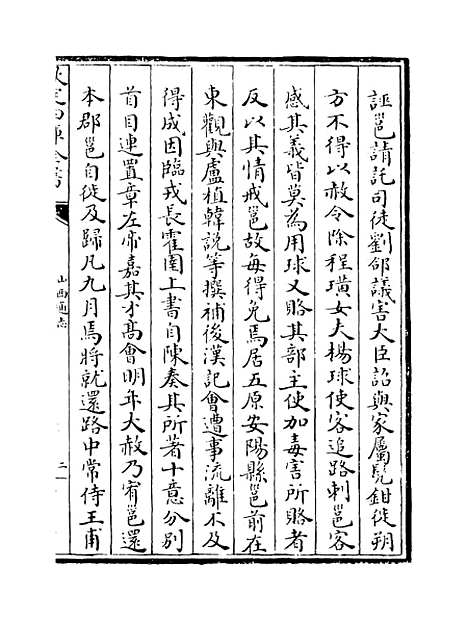 誣邕請託司徒劉郃議害大臣詔與家屬髡鉗徙朔
方不得以赦令除程璜女夫楊球使客追路刺邕客
感其義皆莫為用球又賂其部主使加毒害所賂者
反以其情戒邕故每得免焉居五原安陽縣邕前在
東觀與盧植韓說等撰補後漢記會遭事流離不及
得成因臨戎長霍圉上書自陳奏其所著十意分別
首目連置章左帝嘉其才髙會明年大赦乃宥邕還
本郡邕自徙及歸凡九月焉將就還路中常侍王甫
欽定四庫全書
山西通志
二